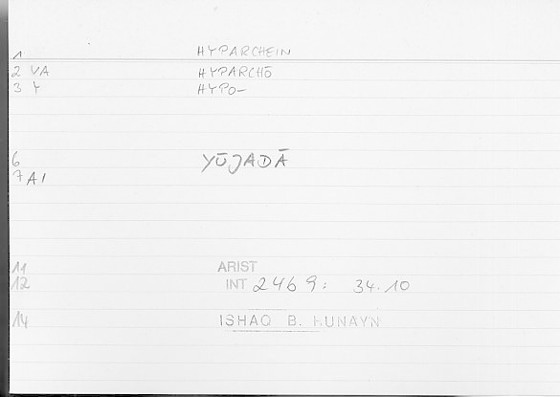 1 HYPARCHEIN
2 VA HYPARCHŌ
3 Y HYPO-
6 YŪJADĀ
7 AI
11 ARIST
12 INT 2469: 34.10
14 ISHAQ B. HUNAYN